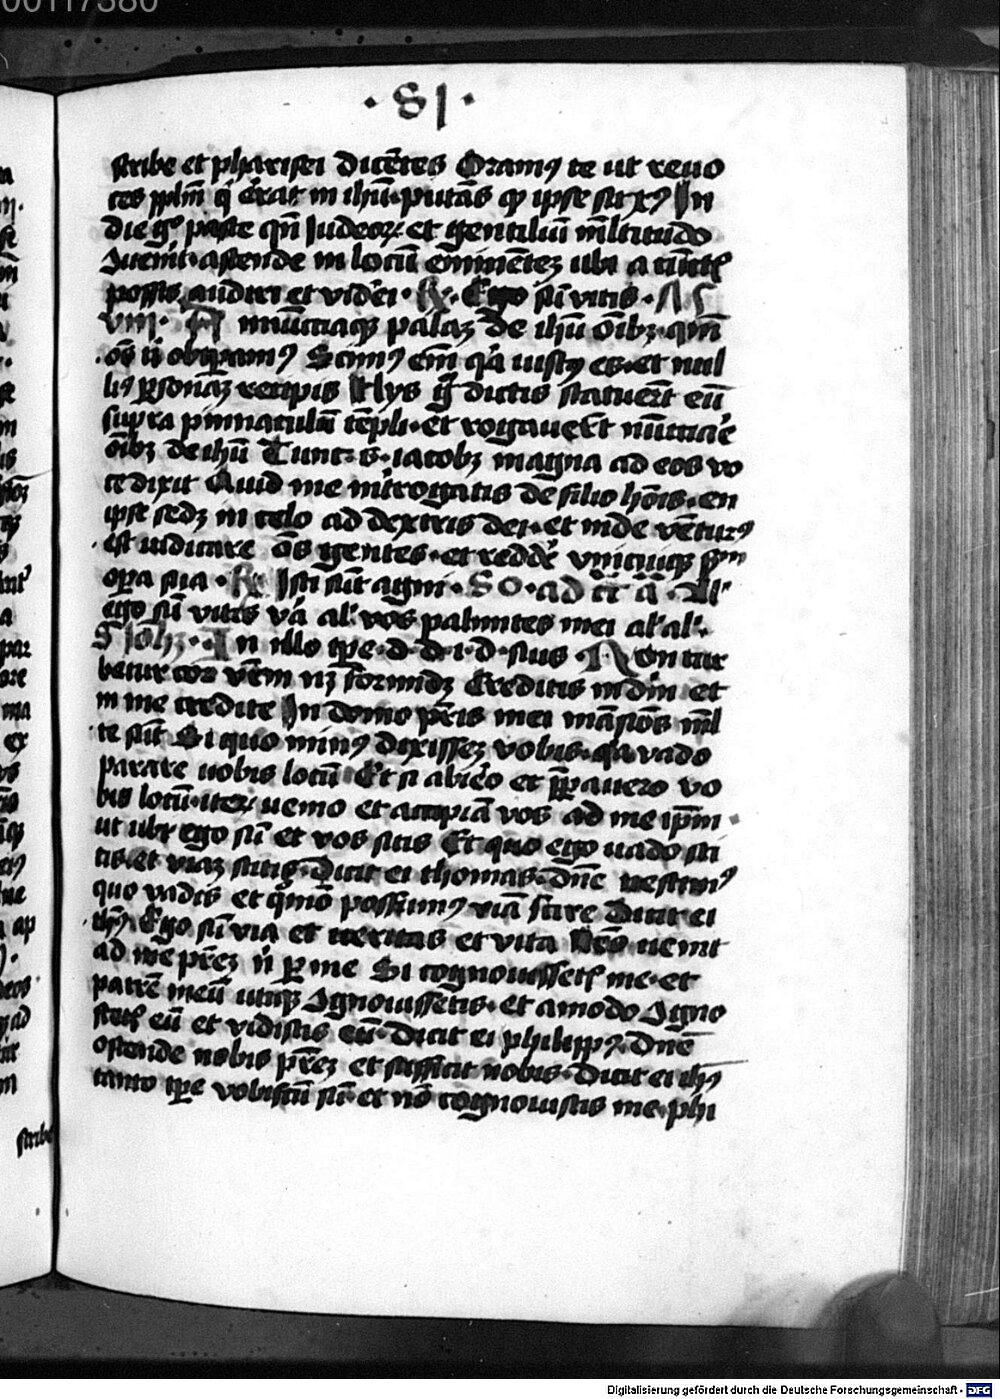 00117380
· SI ·
scribe et pharisei dicētes Oramꝰ te ut reuo
ces pplm̄ q̄ errat in ihū· putās ꝙ ipse sit xp̄ꝰ In
die gͦ pasce qn̄ Iudeoꝝ et gentiliū m̄ltitudo
ꝯuenit· ascende in locū eminēteꝫ ubi a cūctꝭ
possis audiri et videri · ℟. Ego sū vitis ·
VIII · A nnūctiaqꝫ palaꝫ de ihū oībꝫ· qm̄
oēs t̄ obtꝑamꝰ Scimꝰ em̄ qꝛ iustꝰ es· et nul
liꝰ ꝑsonaꝫ recipis Hys g̅ dictis statuerūt eū
supra pinnaculū tēpli· et rogauerūt nūctiare
oībꝫ de ihū Tunc s· iacobꝫ magna ad eos vo
ce dixit Quid me ītrogatis de filio hoīs· en
ipse sedꝫ in celo ad dextris dei· et inde vēturꝰ
est iudicare oēs gentes· et reddē vnicuiqꝫ
opera sua · ℟. Isti sūt agni · ad
ego sū vitis va al· vos palmites mei al· al·
S Ioh̄ꝫ · In illo tꝑe· d· d· i· d· suis · Non tur
betur cor vr̄m nꝫ formidꝫ Creditis in dm̄ et
in me credite In domo pr̄is mei māsiōes ml
te sūt Si quo minꝰ dixisseꝫ vobis· qꝛ vado
parare uobis locū Et si abiero et p̄ꝑauero vo
bis locū· iteꝝ uenio et accipiā vos ad me ip̄m ·
ut ubi ego sū et vos sitis Et quo ego uado sci
tis· et viaꝫ scitis· Dicit ei thomas· Dn̄e nescimꝰ
quo vadis et q̄mō possumꝰ viā scire Dicit ei
ih̄ꝰ Ego sū via et ueritas et vita Nēo uenit
ad me pr̄eꝫ n̄ ꝑ me Si cognouissetꝭ me· et
patrē meū utiqꝫ ꝯgnouissetis· et amodo ꝯgno
scetꝭ eū et vidistis eū· Dicit ei philippꝰ· Dn̄e
ostende nobis pr̄eꝫ et sufficit nobis· Dicit ei ih̄ꝰ
tanto tꝑe vobiscū sū· et nō cognouistis me· phi
scribe
Digitalisierung gefördert durch die Deutsche Forschungsgemeinschaft - DFG